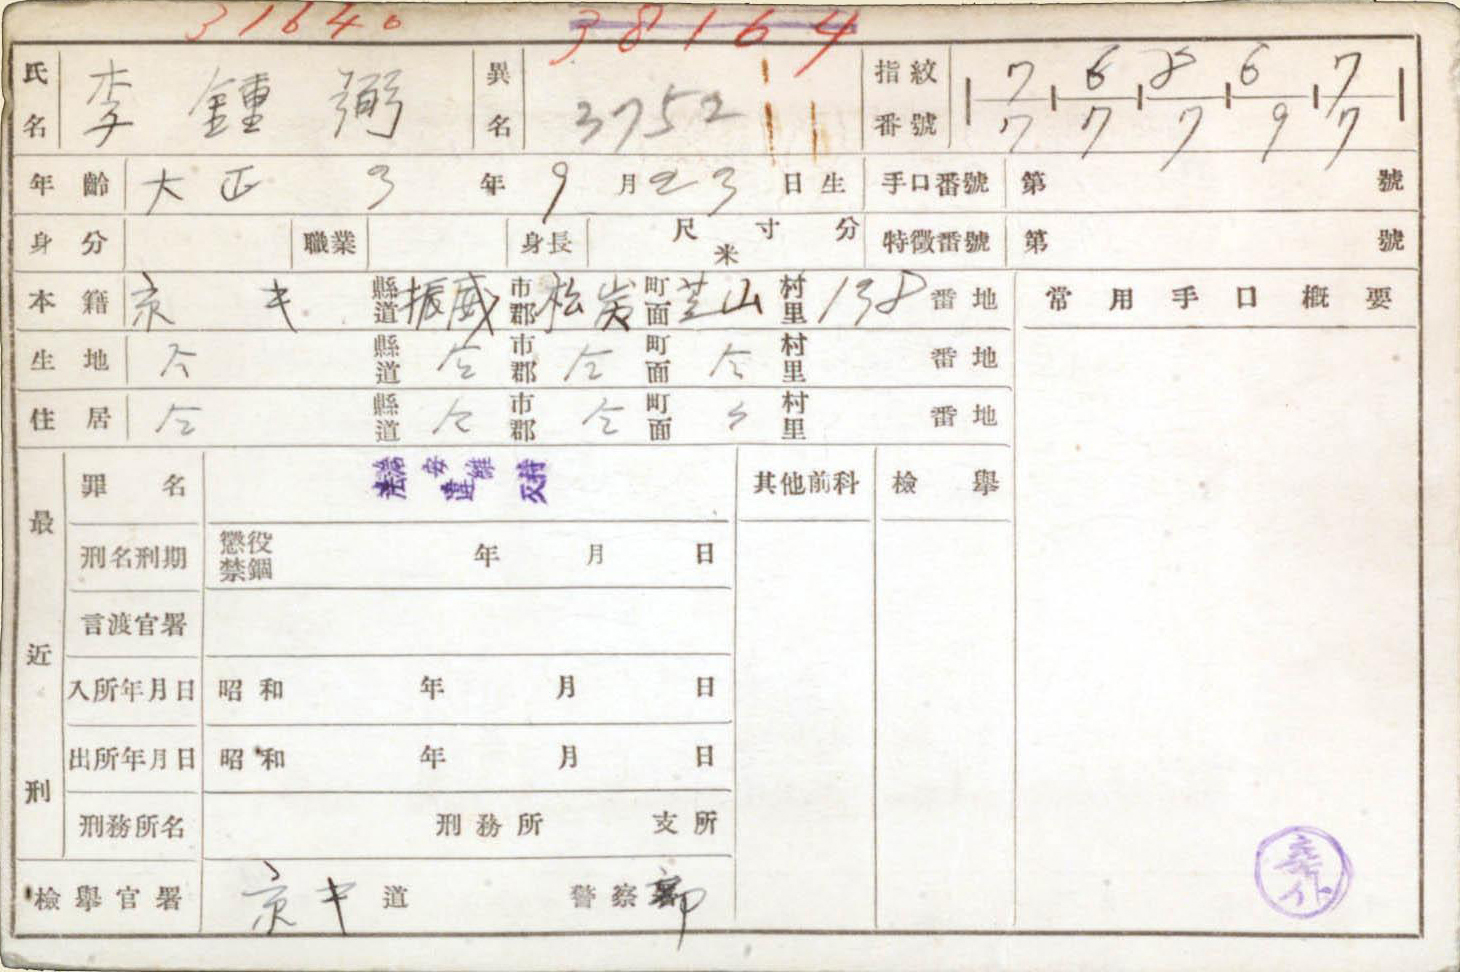 31640 38164
氏名 李鍾弼 異名 3752 指紋番號 7 6 8 6 7
7 7 7 9 7
年齡 大正 3 年 9 月 23 日生 手口番號 第 號
身分 職業 身長 尺 寸 分 米 特徵番號 第 號
本籍 京キ 縣道 振威 市郡 松炭 町面 芝山 村里 138 番地 常用手口概要
生地 仝 縣道 仝 市郡 仝 町面 仝 村里 番地
住居 仝 縣道 仝 市郡 仝 町面 仝 村里 番地
最近刑
罪名 治安維持法違反 其他前科 檢擧
刑名刑期 懲役 禁錮 年 月 日
言渡官署
入所年月日 昭和 年 月 日
出所年月日 昭和 年 月 日
刑務所名 刑務所 支所
檢擧官署 京キ 道 警察部